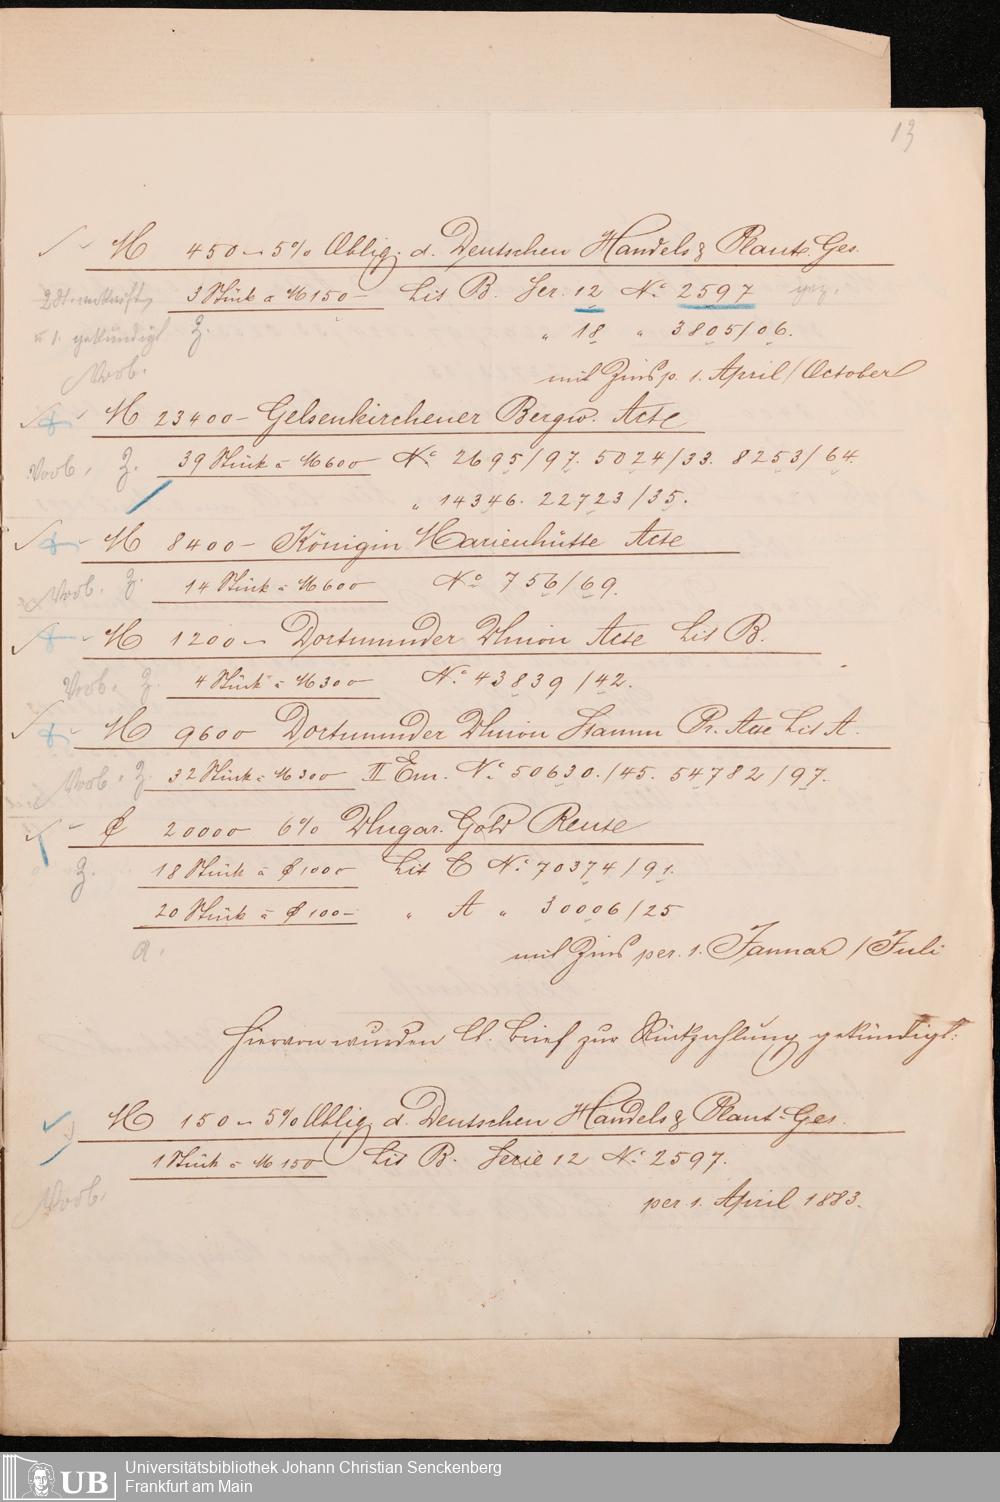 13
M 450 – 5% Oblig. d. Deutschen Handels & Plant. Ges.
3 Stück a M 150 – Lit B. Ser. 12 No. 2597 gez.
2 St. verkauft
u 1. gekündigt Z. „ 18 „ 3805/06.
Vorb. mit Zins p. 1. April/October
M 23400 – Gelsenkirchener Bergw. Acte
Vorb. Z. 39 Stück a M 600 No. 2695/97. 5024/33. 8253/64.
„ 14346. 22723/35.
M 8400 – Königin Marienhütte Acte
Vorb. Z. 14 Stück a M 600 No 756/69.
M 1200 – Dortmunder Union Acte Lit B.
Vorb. Z. 4 Stück a M 300 No. 43839/42.
M 9600 Dortmunder Union Stamm Pr. Acte Lit A.
Vorb. Z. 32 Stück a M 300 II Em. No. 50630./45. 54782/97.
20000 6% Ungar. Gold Rente
Z. 18 Stück a 1000 Lit C No. 70374/91.
20 Stück a 100 – „ A „ 30006/25
a. mit Zins per. 1. Januar/Juli
Hiervon wurden lt. Brief zur Rückzahlung gekündigt:
M 150 – 5% Oblig d. Deutschen Handels & Plant. Ges.
1 Stück a M 150 Lit B. Serie 12 No. 2597.
Vorb. per 1. April 1883.
UB
Universitätsbibliothek Johann Christian Senckenberg
Frankfurt am Main